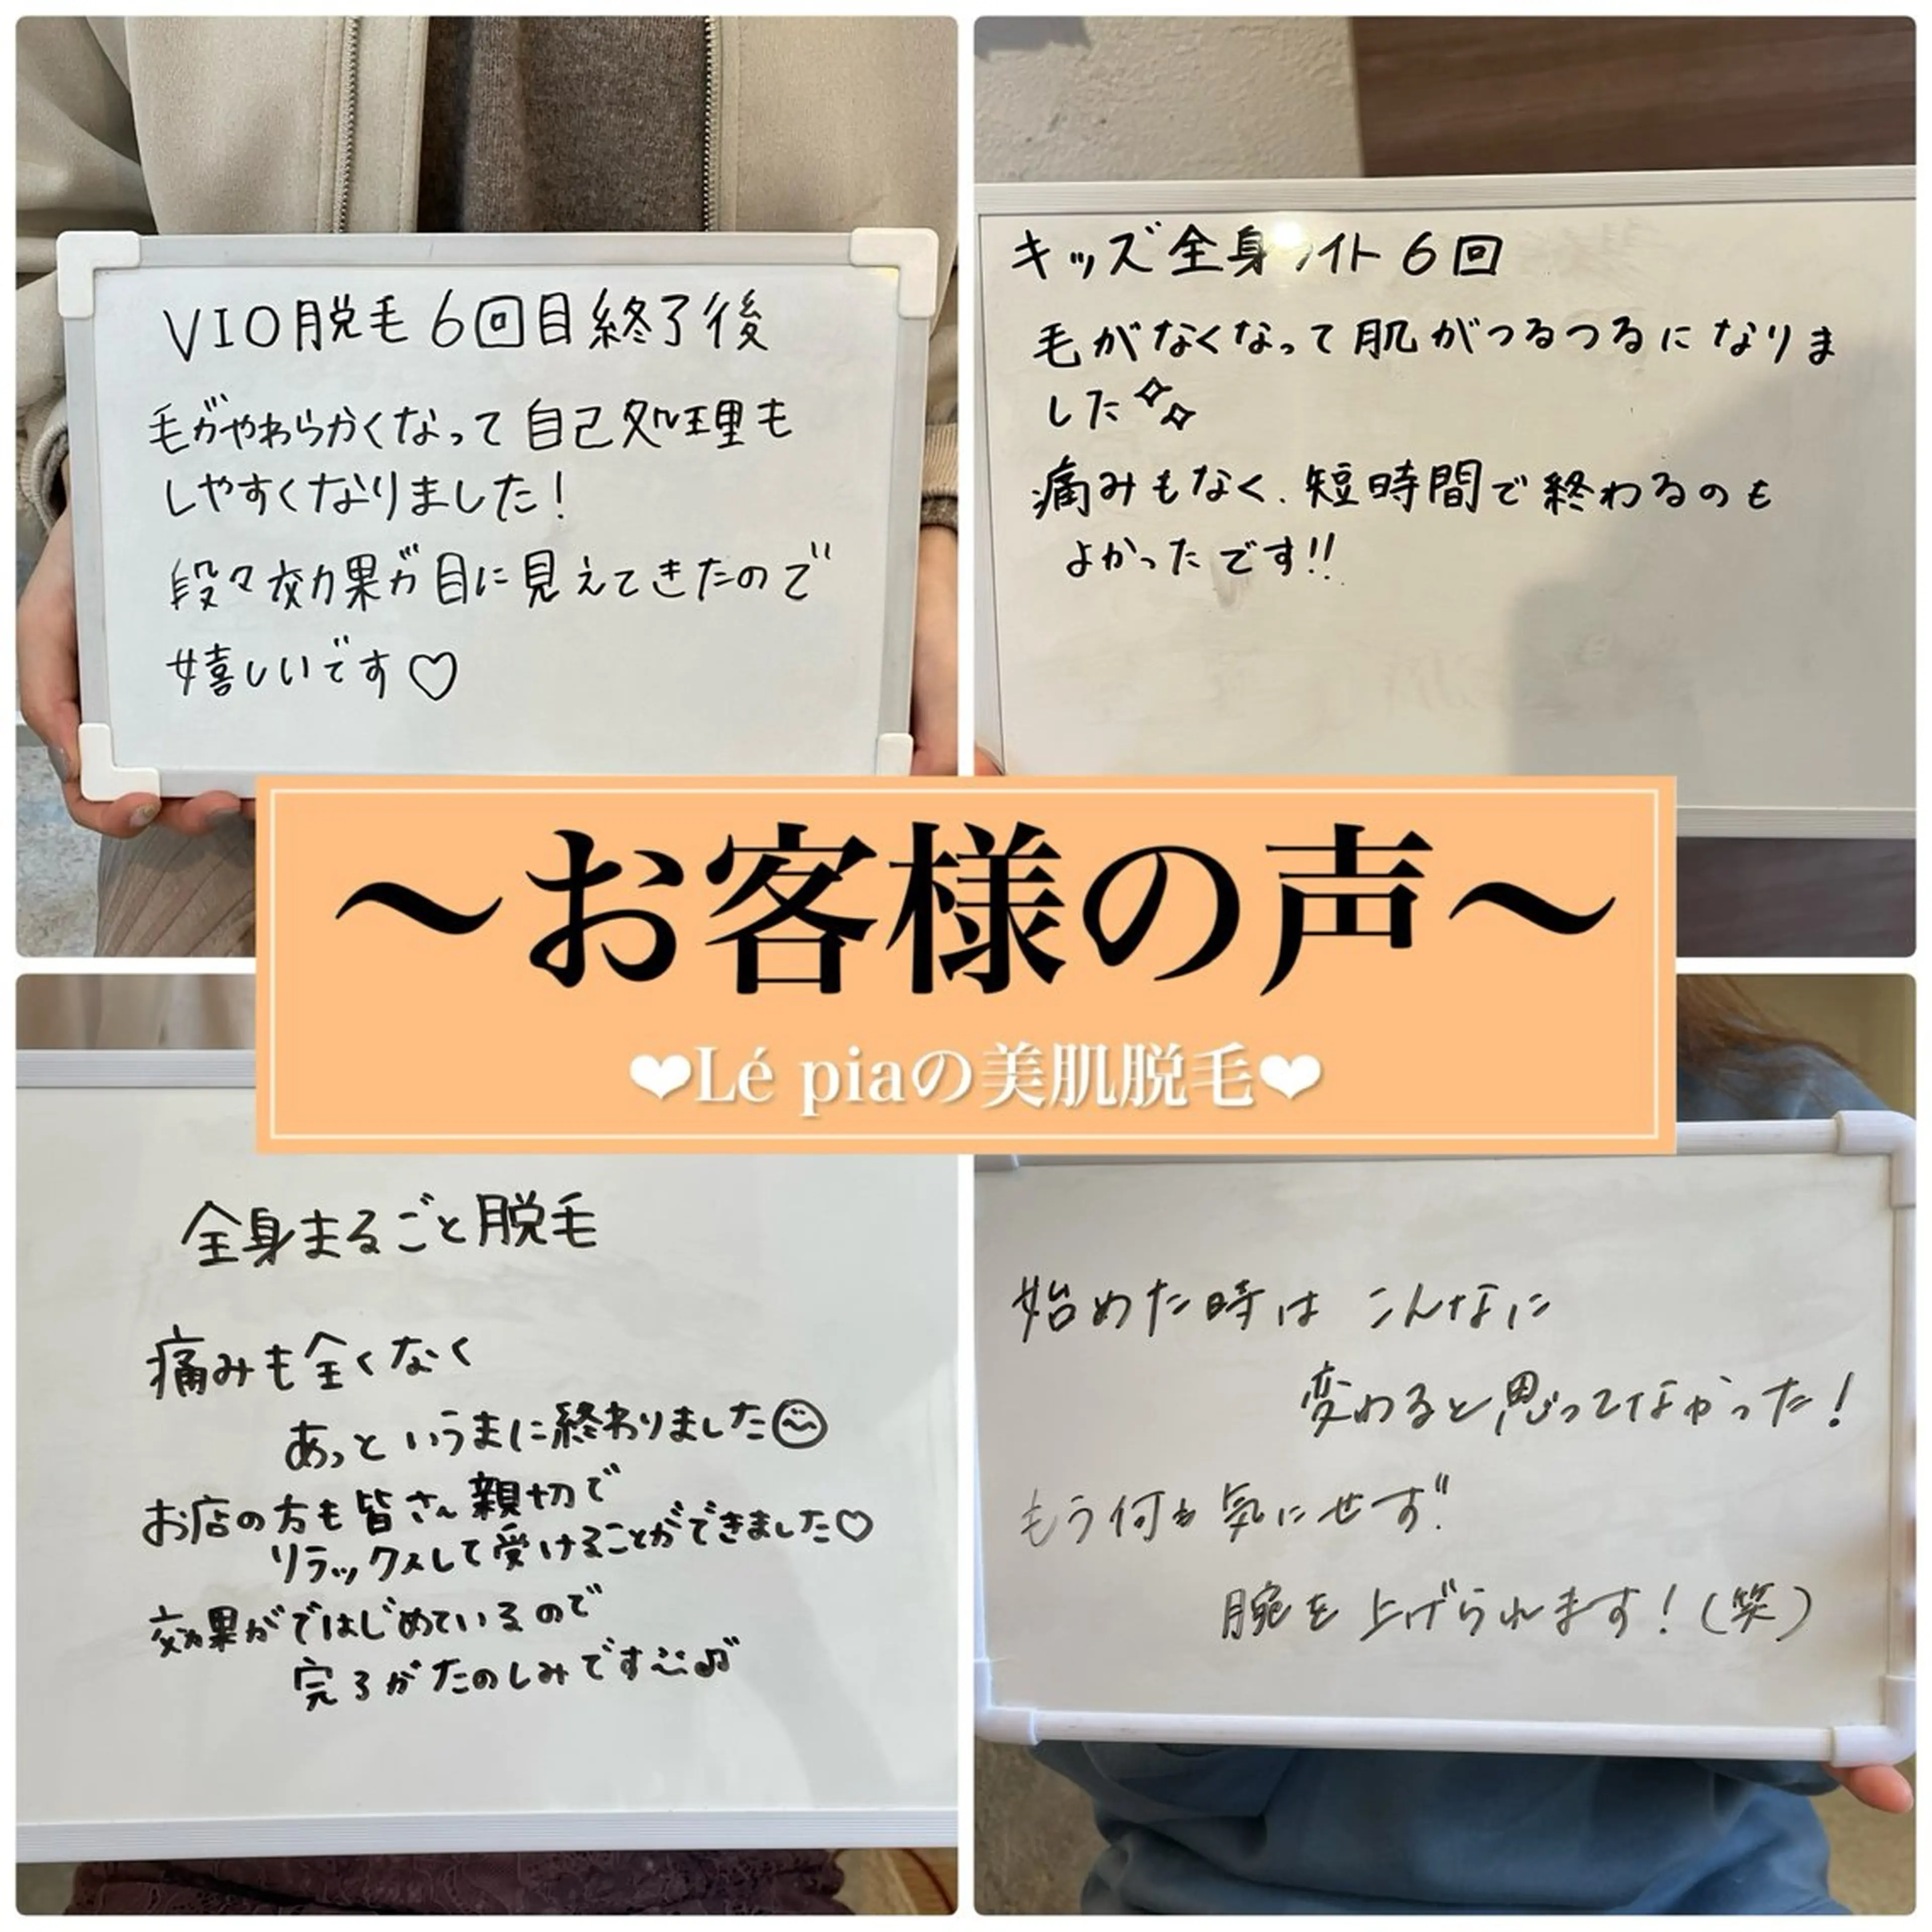 VIO脱毛 6回目終了後
毛がやわらかくなって 自己処理も
しやすくなりました!
段々効果が目に見えてきたので
嬉しいです♡
キッズ全身ライト 6回
毛がなくなって肌がつるつるになりま
した✧✧
痛みもなく、短時間で終わるのも
よかったです!!
〜お客様の声〜
❤Lé piaの美肌脱毛❤
全身まるごと脱毛
痛みも全くなく
あっというまに終わりました☺
お店の方も皆さん親切で
リラックスして受けることができました♡
効果がではじめているので
完了がたのしみです♫
始めた時は こんなに
変わると思ってなかった!
もう何も気にせず!!
腕を上げられます!(笑)